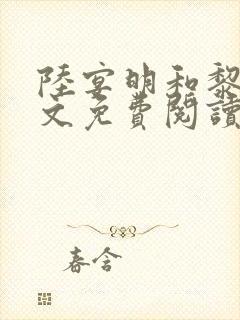 陸宴明和黎
文免費閱讀
春含